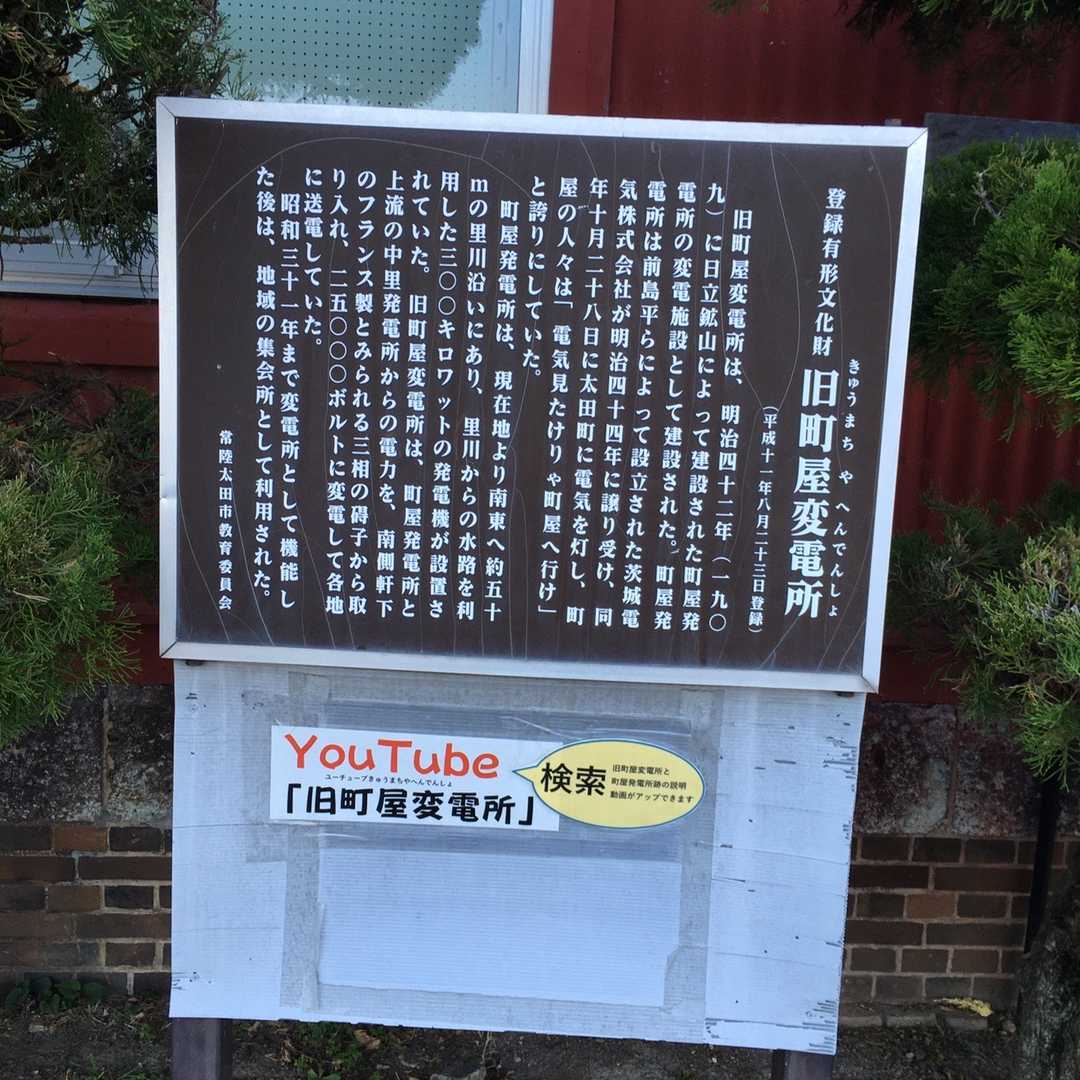 登録有形文化財 旧町屋変電所
きゅうまち や へんでんしょ
(平成十一年八月二十三日登録)
旧町屋変電所は、明治四十二年(一九〇
九)に日立鉱山によって建設された町屋発
電所の変電施設として建設された。町屋発
電所は前島平らによって設立された茨城電
気株式会社が明治四十四年に譲り受け、同
年十月二十八日に太田町に電気を灯し、町
屋の人々は「電気見たけりゃ町屋へ行け」
と誇りにしていた。
町屋発電所は、現在地より南東へ約五十
mの里川沿いにあり、里川からの水路を利
用した三〇〇キロワットの発電機が設置さ
れていた。旧町屋変電所は、町屋発電所と
上流の中里発電所からの電力を、南側軒下
のフランス製とみられる三相の碍子から取
り入れ、二五〇〇〇ボルトに変電して各地
に送電していた。
昭和三十一年まで変電所として機能し
た後は、地域の集会所として利用された。
常陸太田市教育委員会
YouTube
ユーチューブきゅうまちやへんでんしょ
「旧町屋変電所」
検索
旧町屋変電所と
町屋発電所跡の説明
動画がアップできます